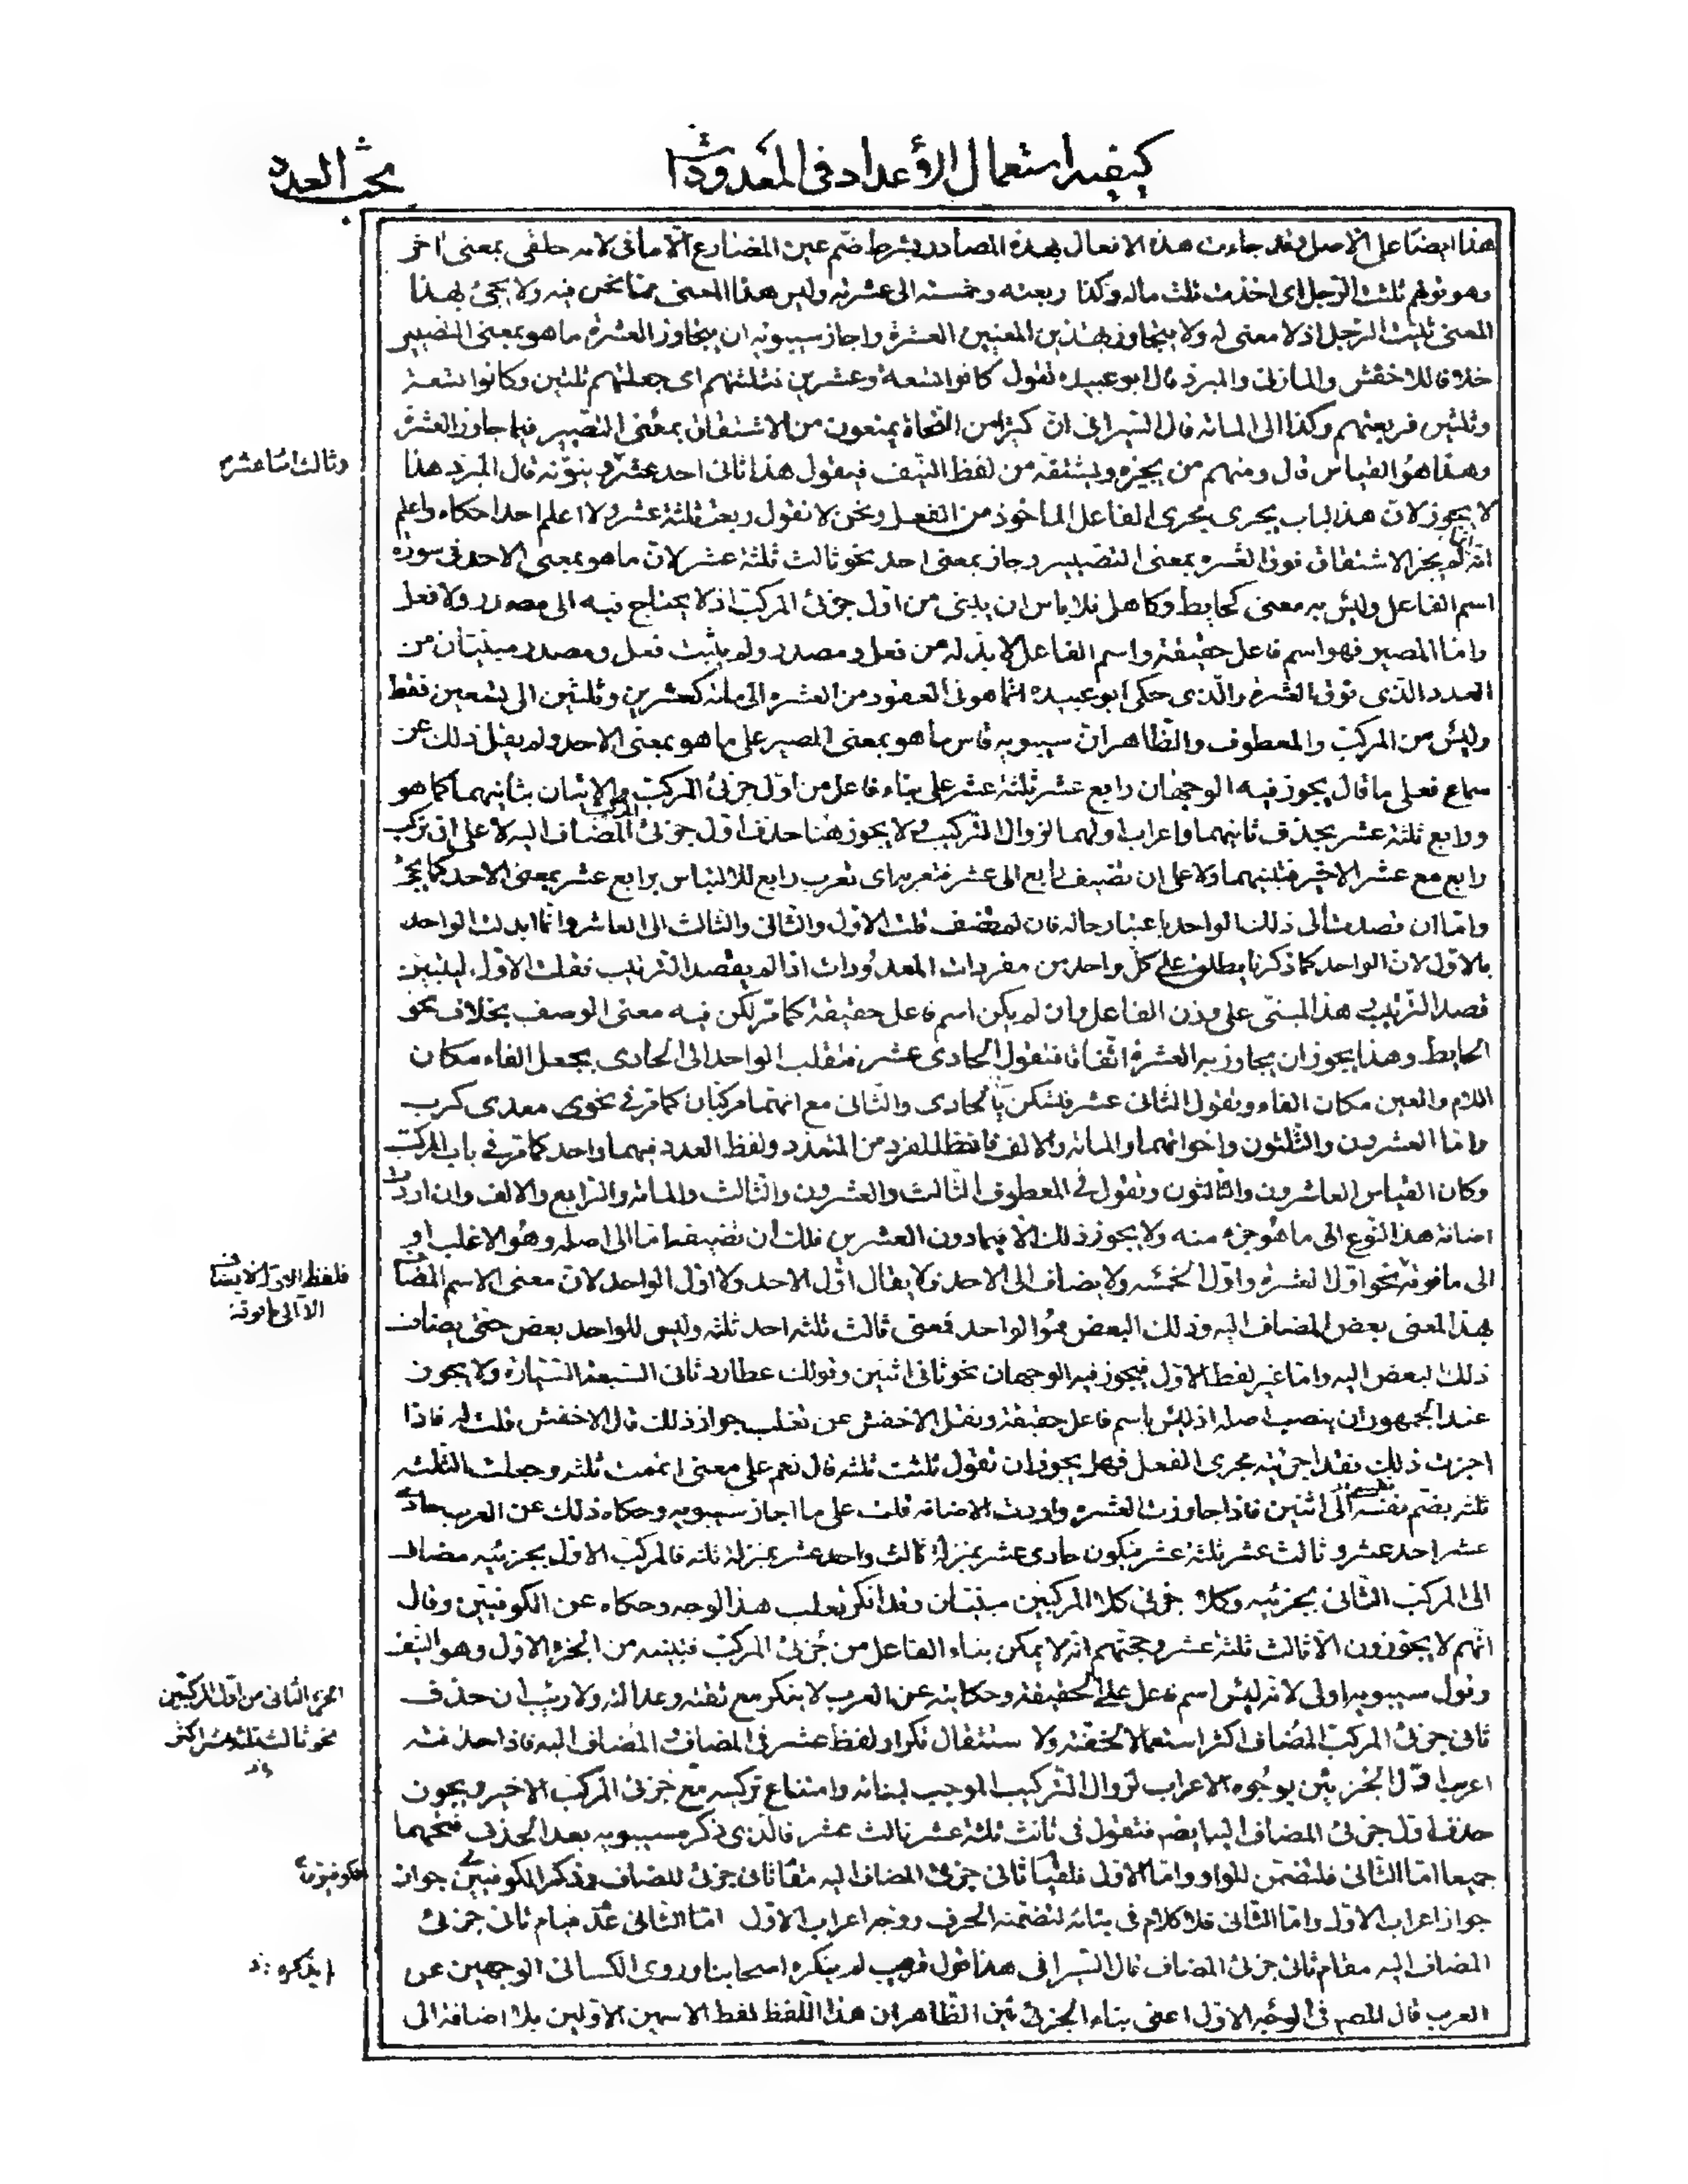 كيفية استعمال الأعداد في المعدودات
بحث العدد
هذا ايضا على الاصل فقد جاءت هذه الافعال بهذه المصادر بشرط ضم عين المضارع الا ما في لامه حلقى بمعنى اخر
وهو قولهم ثلثت الرجل اى اخذت ثلث ماله وكذا ربعته وخمسته الى عشرته وليس هذا المعنى مما نحن فيه ولا يجئ بهذا
المعنى ثلث الرجل اذ لا معنى له ولا يتجاوز بهذين المعنيين العشرة واجاز سيبويه ان يتجاوز العشرة ما هو بمعنى التصيير
خلافا للاخفش والمازنى والمبرد قال ابو عبيدة تقول كانوا تسعة وعشرين فثلثتهم اى جعلتهم ثلثين وكانوا تسعة
وثلثين فربعتهم وكذا الى المائه قال السيرافى ان كثيرا من النحاة يمنعون من الاشتقاق بمعنى التصيير فيما جاوز العشرة
وهذا هو القياس قال ومنهم من يجيزه ويشتقه من لفظ النيف فيقول هذا ثانى احد عشر بنونه قال المبرد هذا
وثالث اثنا عشر
لا يجوز لان هذا الباب يجرى مجرى الفاعل الماخوذ من الفعل ونحن لا نقول ربعت ثلثة عشر ولا اعلم احدا حكاه واعلم
انه لم يجز الاشتقاق فوق العشرة بمعنى التصيير وجاز بمعنى احد نحو ثالث ثلثة عشر لان ما هو بمعنى الاحد فى سورة
اسم الفاعل وليس به معنى كحايط وكاهل فلا باس ان يبنى من اول جزئى المركب اذ لا يحتاج فيه الى مصدر ولا فعل
واما المصير فهو اسم فاعل حقيقة واسم الفاعل لا بد له من فعل ومصدر ولم يثبت فعل ومصدر مبنيتان من
العدد الذى فوق العشرة والذى حكى ابو عبيدة انما هو فى العقود من العشره الى مائه كعشرين وثلثين الى تسعين فقط
وليس من المركب والمعطوف والظاهر ان سيبويه قاس ما هو بمعنى المصير على ما هو بمعنى الاحد ولم يقل ذلك عن
سماع فعلى ما قال يجوز فيه الوجهان رابع عشر ثلثة عشر على بناء فاعل من اول جزئى المركب والاتيان بثانيهما كما هو
ورابع ثلثة عشر بحذف ثانيهما واعراب اولهما لزوال التركيب ولا يجوز هنا حذف اول جزئى المركب المضاف اليه لا على ان تركب
رابع مع عشر الاخير فتبنيهما ولا على ان تضيف رابع الى عشر فتعربه اى تعرب رابع للالتباس برابع عشر بمعنى الاحد كما يجئ
واما ان قصدت الى ذلك الواحد باعتبار حاله فان لم تضف قلت الاول والثانى والثالث الى العاشر وانما ابدلت الواحد
بالاول لان الواحد كما ذكرنا يطلق على كل واحد من مفردات المعدودات اذا لم يقصد الترتيب فقلت الاول ليتبين
قصد الترتيب هذا المبنى على وزن الفاعل وان لم يكن اسم فاعل حقيقة كما مر لكن فيه معنى الوصف بخلاف نحو
الحايط وهذا يجوز ان يجاوز به العشرة اتفاقا فتقول الحادى عشر فتقلب الواحد الى الحادى بجعل الفاء مكان
اللام والعين مكان الفاء وتقول الثانى عشر فتسكن ياء الحادى والثانى مع انهما مركبان كما مر فى نحو معدى كرب
واما العشرون والثلثون واخواتهما والمائه والالف فلفظ المفرد من المتعدد ولفظ العدد فيهما واحد كما مر فى باب المركب
وكان القياس العاشرون والثالثون وتقول فى المعطوف الثالث والعشرون والثالث والمائه والرابع والالف وان اردت
اضافة هذا النوع الى ما هو جزء منه ولا يجوز ذلك الا فيما دون العشرين فلك ان تضيفه اما الى اصله وهو الاغلب او
الى ما فوقه نحو اول العشرة واول الخمسه ولا يضاف الى الاحد فلا يقال اول الاحد ولا اول الواحد لان معنى الاسم المضاف
فلفظ الاول لا يضاف
الا الى ما فوقه
بهذا المعنى بعض المضاف اليه وذلك البعض هو الواحد فمعنى ثالث ثلثه احد ثلثه وليس للواحد بعض حتى يضاف
ذلك البعض اليه واما غير لفظ الاول فيجوز فيه الوجهان نحو ثانى اثنين وقولك عطارد ثانى السبعة السيارة ولا يجوز
عند الجمهور ان ينصب اصله اذ ليس باسم فاعل حقيقة ونقل الاخفش عن ثعلب جواز ذلك قال الاخفش قلت له فاذا
اجزت ذلك فقد اجريته مجرى الفعل فهل يجوز ان تقول ثلثت ثلثه قال نعم على معنى اتممت ثلثه وجعلت الثلثه
ثلثه بضم نفسه الى اثنين فاذا جاوزت العشره واردت الاضافه قلت على ما اجاز سيبويه وحكاه ذلك عن العرب حادى
عشر احد عشر وثالث عشر ثلثة عشر فيكون حادى عشر بمنزلة ثالث واحد عشر بمنزلة ثلثه فالمركب الاول بجزئيه مضاف
الى المركب الثانى بجزئيه وكلا جزئى كلا المركبين مبنيان وقد انكر ثعلب هذا الوجه وحكاه عن الكوفيين وقال
انهم لا يجوزون الا ثالث ثلثة عشر وحجتهم انه لا يمكن بناء الفاعل من جزئى المركب فتبنيه من الجزء الاول وهو النيف
وقول سيبويه اولى لانه ليس اسم فاعل على الحقيقة وحكايته عن العرب لا ينكر مع ثقته وعدالته ولا ريب ان حذف
الجزء الثانى من اول المركبين
نحو ثالث ثلثة عشر اكثر
ثانى جزئى المركب المضاف اكثر استعمالا لخفته ولا ستثقال تكرار لفظ عشر فى المضاف المضاف اليه فاذا حذفته
اعرب اول الجزئين بوجوه الاعراب لزوال التركيب الموجب لبنائه وامتناع تركيبه مع جزئى المركب الاخير ويجوز
حذف اول جزئى المضاف اليه ايضم فتقول فى ثالث ثلثة عشر ثالث عشر فالذى ذكره سيبويه بعد الحذف فتحهما
جميعا اما الثانى فلتضمن للواو واما الاول فلقيام ثانى جزئى المضاف اليه مقام ثانى جزئى المضاف وذكر الكوفيين جواز
الكوفيون
جواز اعراب الاول واما الثانى فلا كلام فى بنائه لتضمنه الحرف ووجه اعراب الاول اما الثانى عدّ قيام ثانى جزئى
المضاف اليه مقام ثانى جزئى المضاف قال السيرافى هذا قول قريب لم ينكره اصحابنا وروى الكسائى الوجهين عن
لم ينكره
العرب قال المصم فى الوجه الاول اعنى بناء الجزئين الظاهر ان هذا اللفظ لفظ الاسمين الاولين بلا اضافة الى